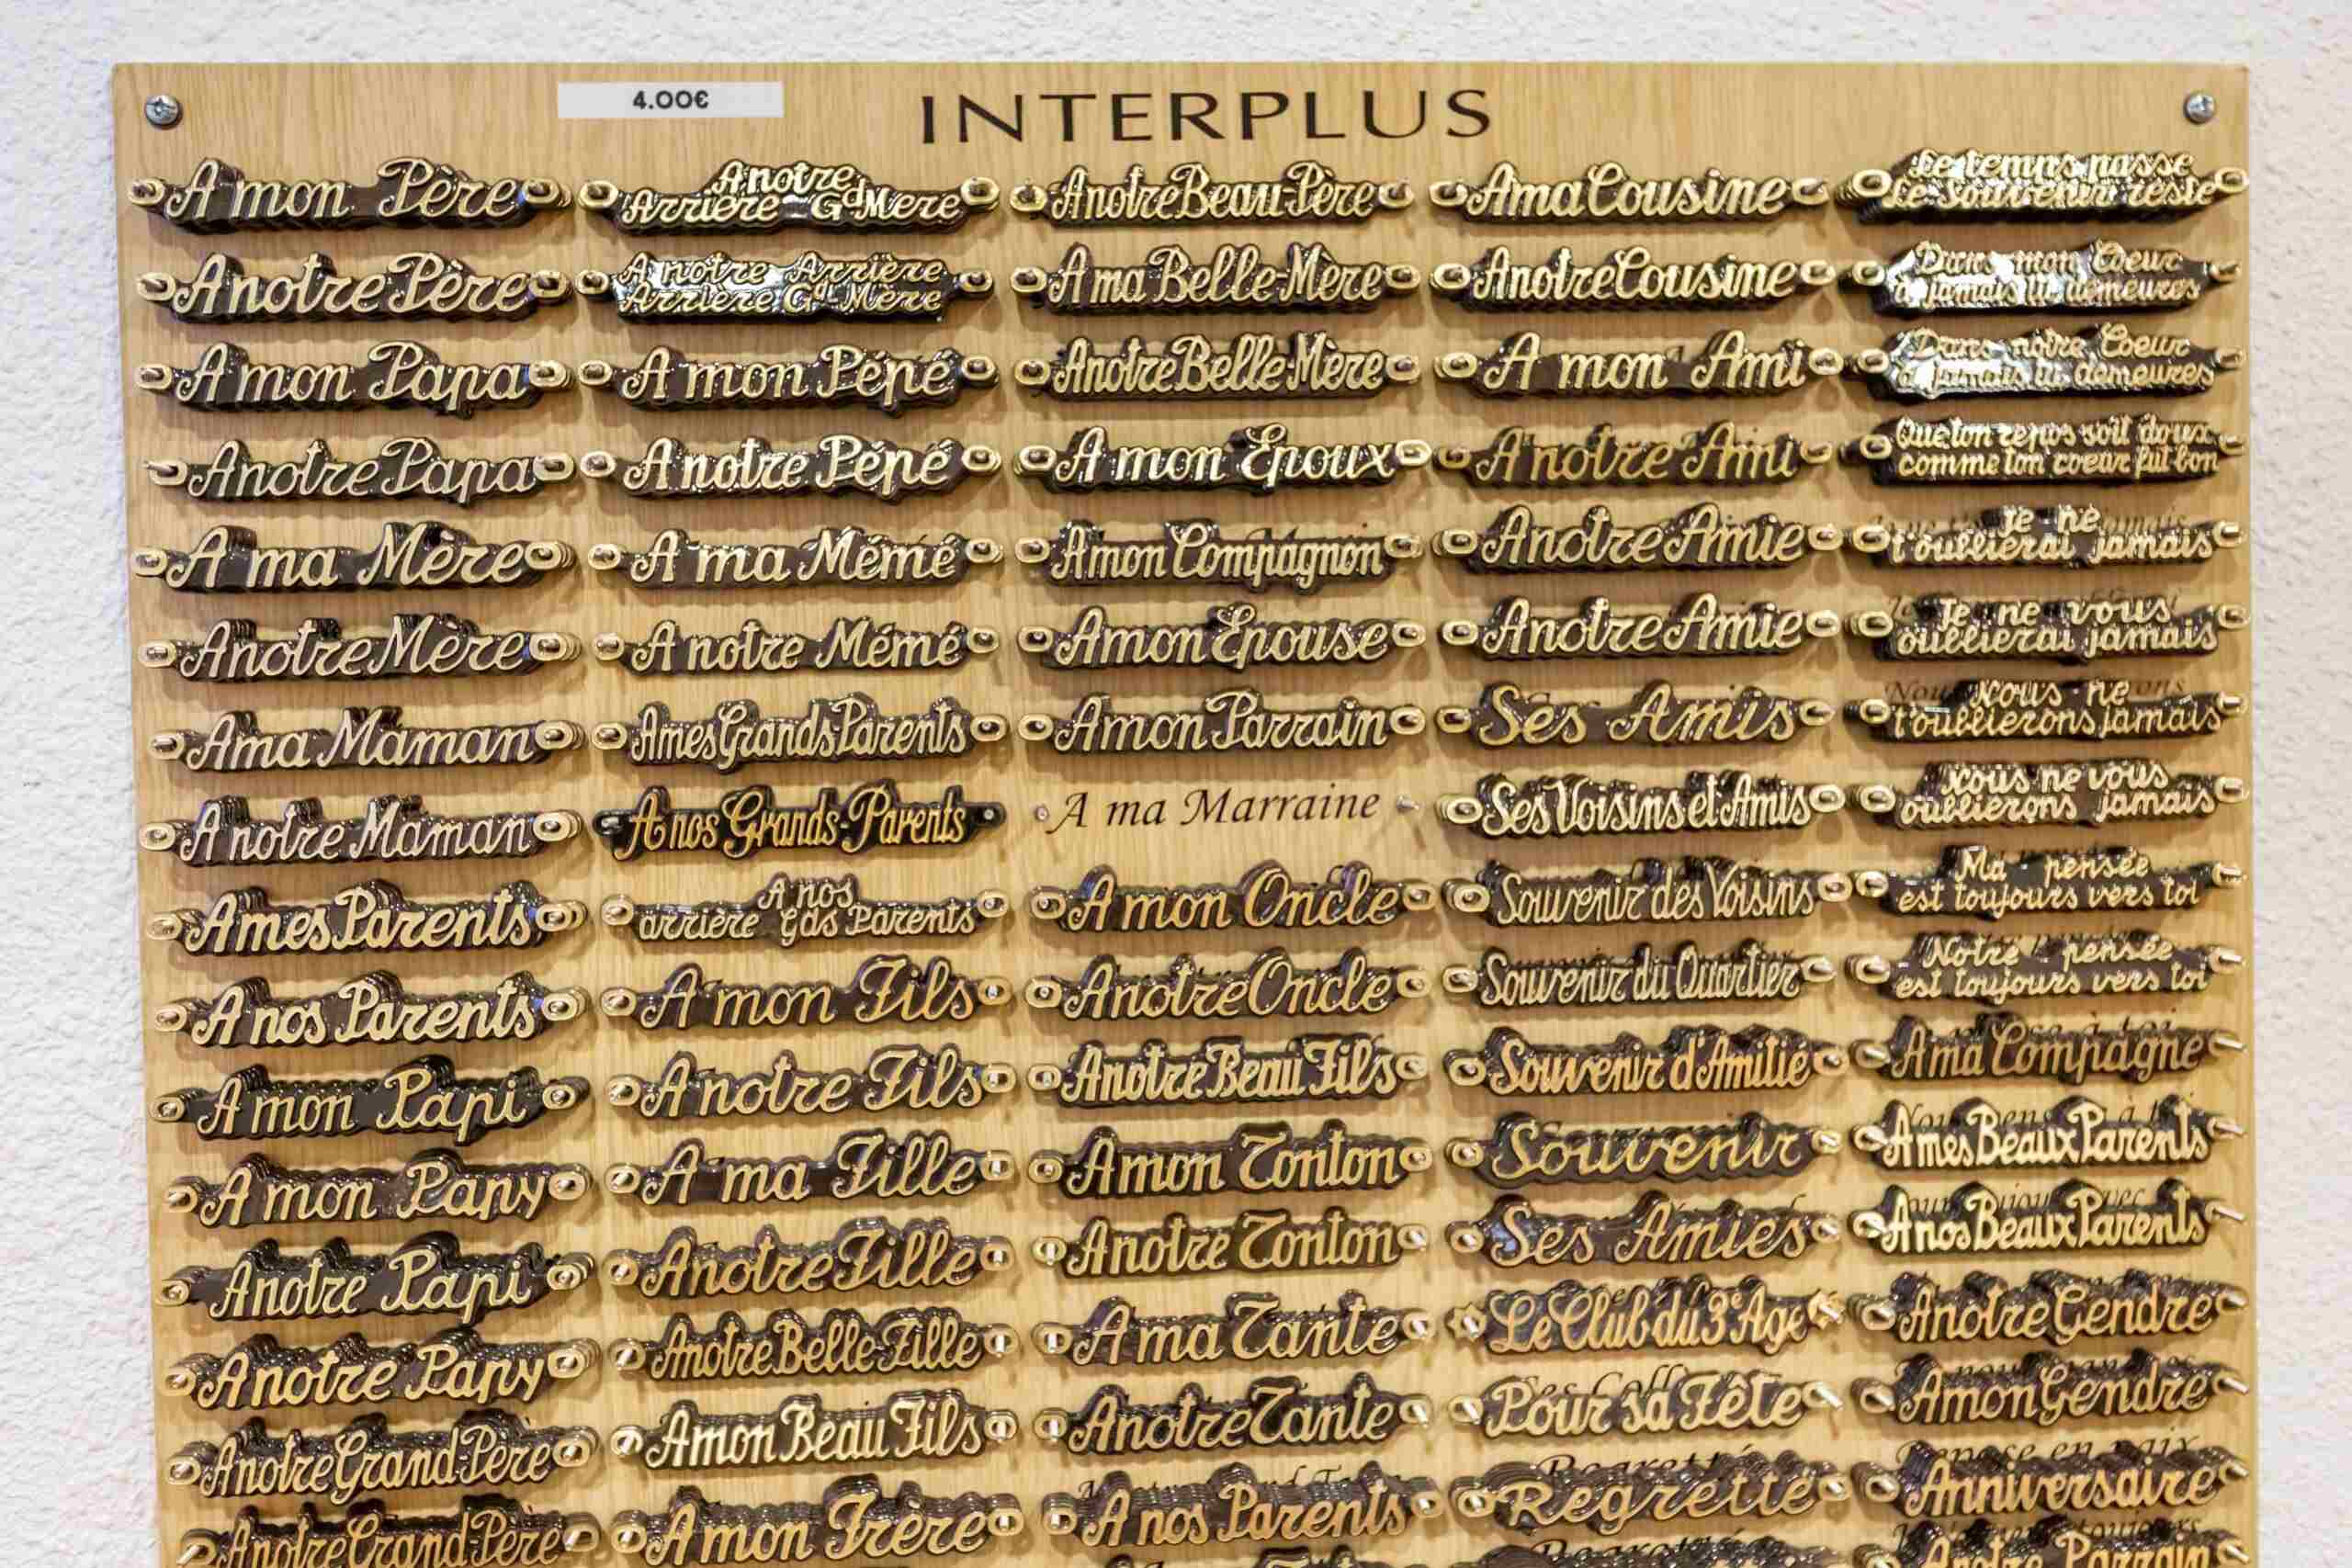 4.00€
INTERPLUS
A mon Père
A notre Père
A mon Papa
A notre Papa
A ma Mère
A notre Mère
A ma Maman
A notre Maman
A mes Parents
A nos Parents
A mon Papi
A mon Papy
A notre Papi
A notre Papy
A notre Grand-Père
A notre Grand-Père
A notre
Arrière Gd Mere
A notre Arrière
Arrière Gd-Mère
A mon Pépé
A notre Pépé
A ma Mémé
A notre Mémé
A mes Grands-Parents
A nos Grands-Parents
A nos
arrière Gds Parents
A mon Fils
A notre Fils
A ma Fille
A notre Fille
A notre Belle-Fille
A mon Beau Fils
A mon Frère
A notre Beau-Père
A ma Belle-Mere
A notre Belle-Mère
A mon Epoux
A mon Compagnon
A mon Epouse
A mon Parrain
A ma Marraine
A mon Oncle
A notre Oncle
A notre Beau Fils
A mon Tonton
A notre Tonton
A ma Tante
A notre Tante
A nos Parents
A ma Cousine
A notre Cousine
A mon Ami
A notre Ami
A notre Amie
A notre Amie
Ses Amis
Ses Voisins et Amis
Souvenir des Voisins
Souvenir du Quartier
Souvenir d'Amitié
Souvenir
Ses Amies
Le Club du 3e Age
Pour sa Fête
Regretté
Regrette
Le temps passe
Le Souvenir reste
Dans mon Coeur
a jamais tu demeures
Dans notre Coeur
a jamais tu demeures
Que ton repos soit doux
comme ton coeur fut bon
Je ne
t'oublierai jamais
Je ne vous
oublierai jamais
Nous ne
t'oublierons jamais
Nous ne vous
oublierons jamais
Ma pensée
est toujours vers toi
Notre pensée
est toujours vers toi
A ma Compagne
A mes Beaux Parents
A nos Beaux Parents
A notre Gendre
A mon Gendre
Repose en paix
Anniversaire
A notre Parrain